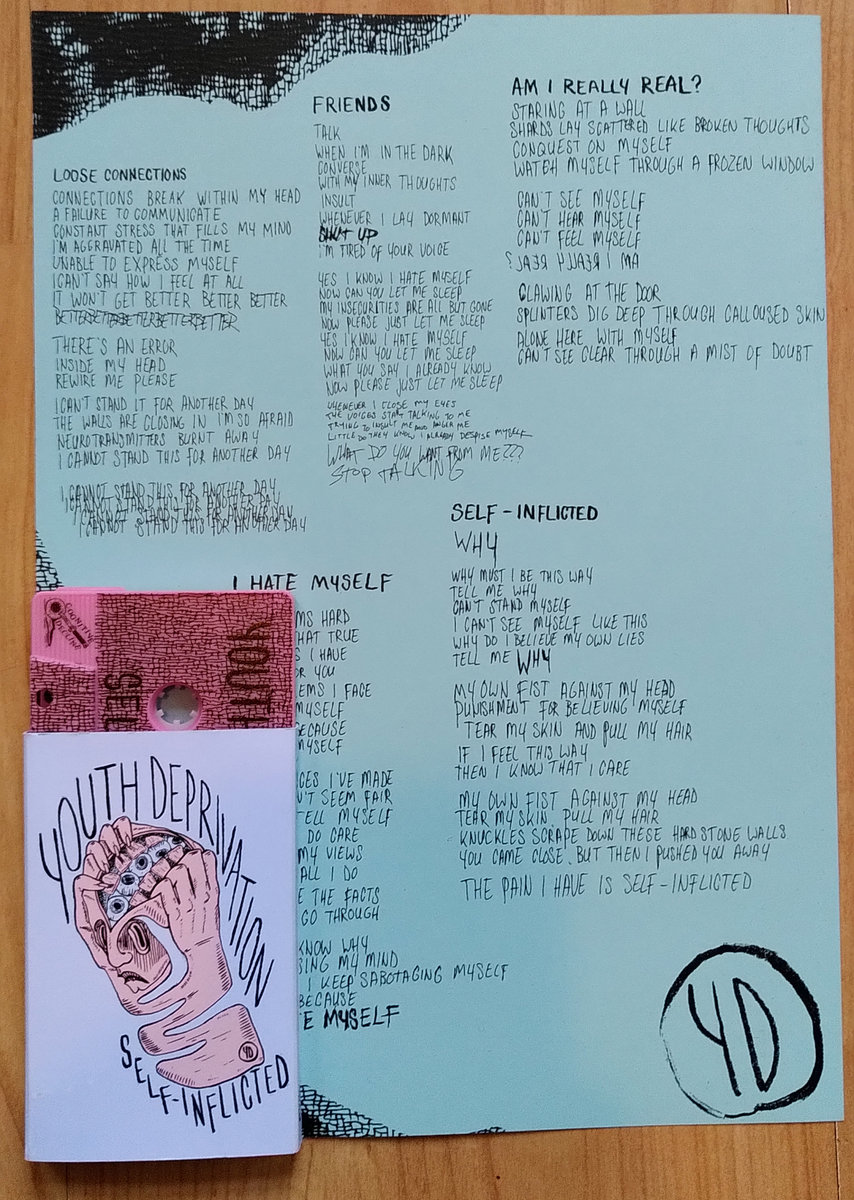 LOOSE CONNECTIONS
CONNECTIONS BREAK WITHIN MY HEAD
A FAILURE TO COMMUNICATE
CONSTANT STRESS THAT FILLS MY MIND
I'M AGGRAVATED ALL THE TIME
UNABLE TO EXPRESS MYSELF
I CAN'T SAY HOW I FEEL AT ALL
IT WON'T GET BETTER BETTER BETTER
BETTERBETTERBETTERBETTERBETTER
THERE'S AN ERROR
INSIDE MY HEAD
REWIRE ME PLEASE
I CAN'T STAND IT FOR ANOTHER DAY
THE WALLS ARE CLOSING IN I'M SO AFRAID
NEUROTRANSMITTERS BURNT AWAY
I CANNOT STAND THIS FOR ANOTHER DAY
I CANNOT STAND THIS FOR ANOTHER DAY
I CANNOT STAND THIS FOR ANOTHER DAY
I CANNOT STAND THIS FOR ANOTHER DAY
I CANNOT STAND THIS FOR ANOTHER DAY
FRIENDS
TALK
WHEN I'M IN THE DARK
CONVERSE
WITH MY INNER THOUGHTS
INSULT
WHENEVER I LAY DORMANT
SHUT UP
I'M TIRED OF YOUR VOICE
YES I KNOW I HATE MYSELF
NOW CAN YOU LET ME SLEEP
MY INSECURITIES ARE ALL BUT GONE
NOW PLEASE JUST LET ME SLEEP
YES I KNOW I HATE MYSELF
NOW CAN YOU LET ME SLEEP
WHAT YOU SAY I ALREADY KNOW
NOW PLEASE JUST LET ME SLEEP
WHENEVER I CLOSE MY EYES
THE VOICES START TALKING TO ME
TRYING TO INSULT ME AND ANGER ME
LITTLE DO THEY KNOW I ALREADY DESPISE MYSELF
WHAT DO YOU WANT FROM ME???
STOP TALKING
AM I REALLY REAL?
STARING AT A WALL
SHARDS LAY SCATTERED LIKE BROKEN THOUGHTS
CONQUEST ON MYSELF
WATCH MYSELF THROUGH A FROZEN WINDOW
CAN'T SEE MYSELF
CAN'T HEAR MYSELF
CAN'T FEEL MYSELF
AM I REALLY REAL?
CLAWING AT THE DOOR
SPLINTERS DIG DEEP THROUGH CALLOUSED SKIN
ALONE HERE WITH MYSELF
CAN'T SEE CLEAR THROUGH A MIST OF DOUBT
I HATE MYSELF
MS HARD
HAT TRUE
S I HAVE
OR YOU
EMS I FACE
MYSELF
BECAUSE
MYSELF
CES I'VE MADE
N'T SEEM FAIR
TELL MYSELF
DO CARE
MY VIEWS
ALL I DO
E THE FACTS
GO THROUGH
KNOW WHY
SING MY MIND
I KEEP SABOTAGING MYSELF
BECAUSE
E MYSELF
SELF-INFLICTED
WHY
WHY MUST I BE THIS WAY
TELL ME WHY
CAN'T STAND MYSELF
I CAN'T SEE MYSELF LIKE THIS
WHY DO I BELIEVE MY OWN LIES
TELL ME WHY
MY OWN FIST AGAINST MY HEAD
PUNISHMENT FOR BELIEVING MYSELF
TEAR MY SKIN AND PULL MY HAIR
IF I FEEL THIS WAY
THEN I KNOW THAT I CARE
MY OWN FIST AGAINST MY HEAD
TEAR MY SKIN, PULL MY HAIR
KNUCKLES SCRAPE DOWN THESE HARD STONE WALLS
YOU CAME CLOSE, BUT THEN I PUSHED YOU AWAY
THE PAIN I HAVE IS SELF-INFLICTED
YD
YOUTH
SELF
YOUTH DEPRIVATION
YD
SELF-INFLICTED